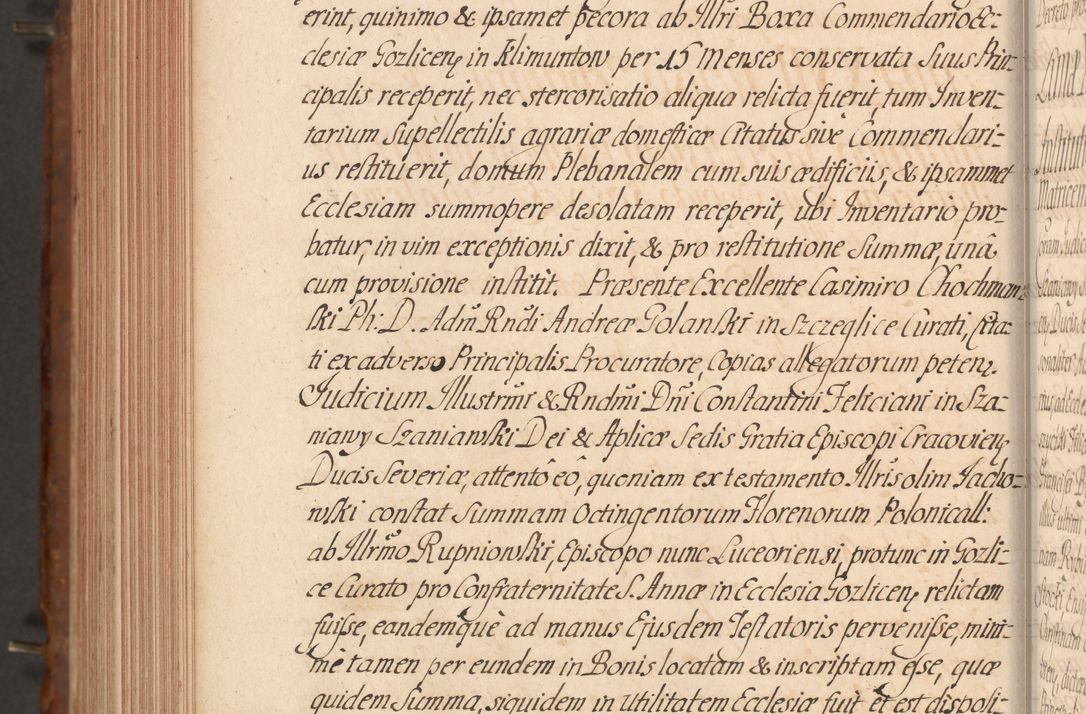 erint, quinimo & ipsamet pecora ab Illri Boxa Commendario Ec:
clesiæ Gozlicen in Klimuntow per 15 Menses conservata suus Prin:
cipalis receperit, nec stercorisatio aliqua relicta fuerit, tum Inven:
tarium supellectilis agrariæ domesticæ Citatus sivè Commendari:
us restituerit, domum Plebanalem cum suis ædificiis, & ipsammet
Ecclesiam summopere desolatam receperit, ubi Inventario pro:
batur, in vim exceptionis dixit, & pro restitutione Summæ, unâ
cum provisione institit. Præsente Excellente Casimiro Chochman:
ski Ph: D. Adm Rndi Andreæ Golanski in Szczeglice Curati, Cita:
ti ex adverso Principalis Procuratore, Copias allegatorum peten.
Judicium Illustrmi & Rndmi Dni Constantini Feliciani in Sza:
niawy Szaniawski Dei & Aplicæ Sedis Gratia Episcopi Cracovien
Ducis Severiæ, attentô eô, quoniam ex testamento Illris olim Jacho:
wski constat Summam Octingentorum Florenorum Polonicall:
ab Illrmo Rupniowski, Episcopo nunc Luceoriensi, protunc in Gozli:
ce Curato pro Confraternitate S. Annæ in Ecclesia Gozlicen relictam
fuisse, eandemque ad manus Ejusdem Testatoris pervenisse, mini:
mè tamen per eundem in Bonis locatam & inscriptam esse, quæ
quidem Summa, siquidem in Utilitatem Ecclesiæ fuit et est disposi: